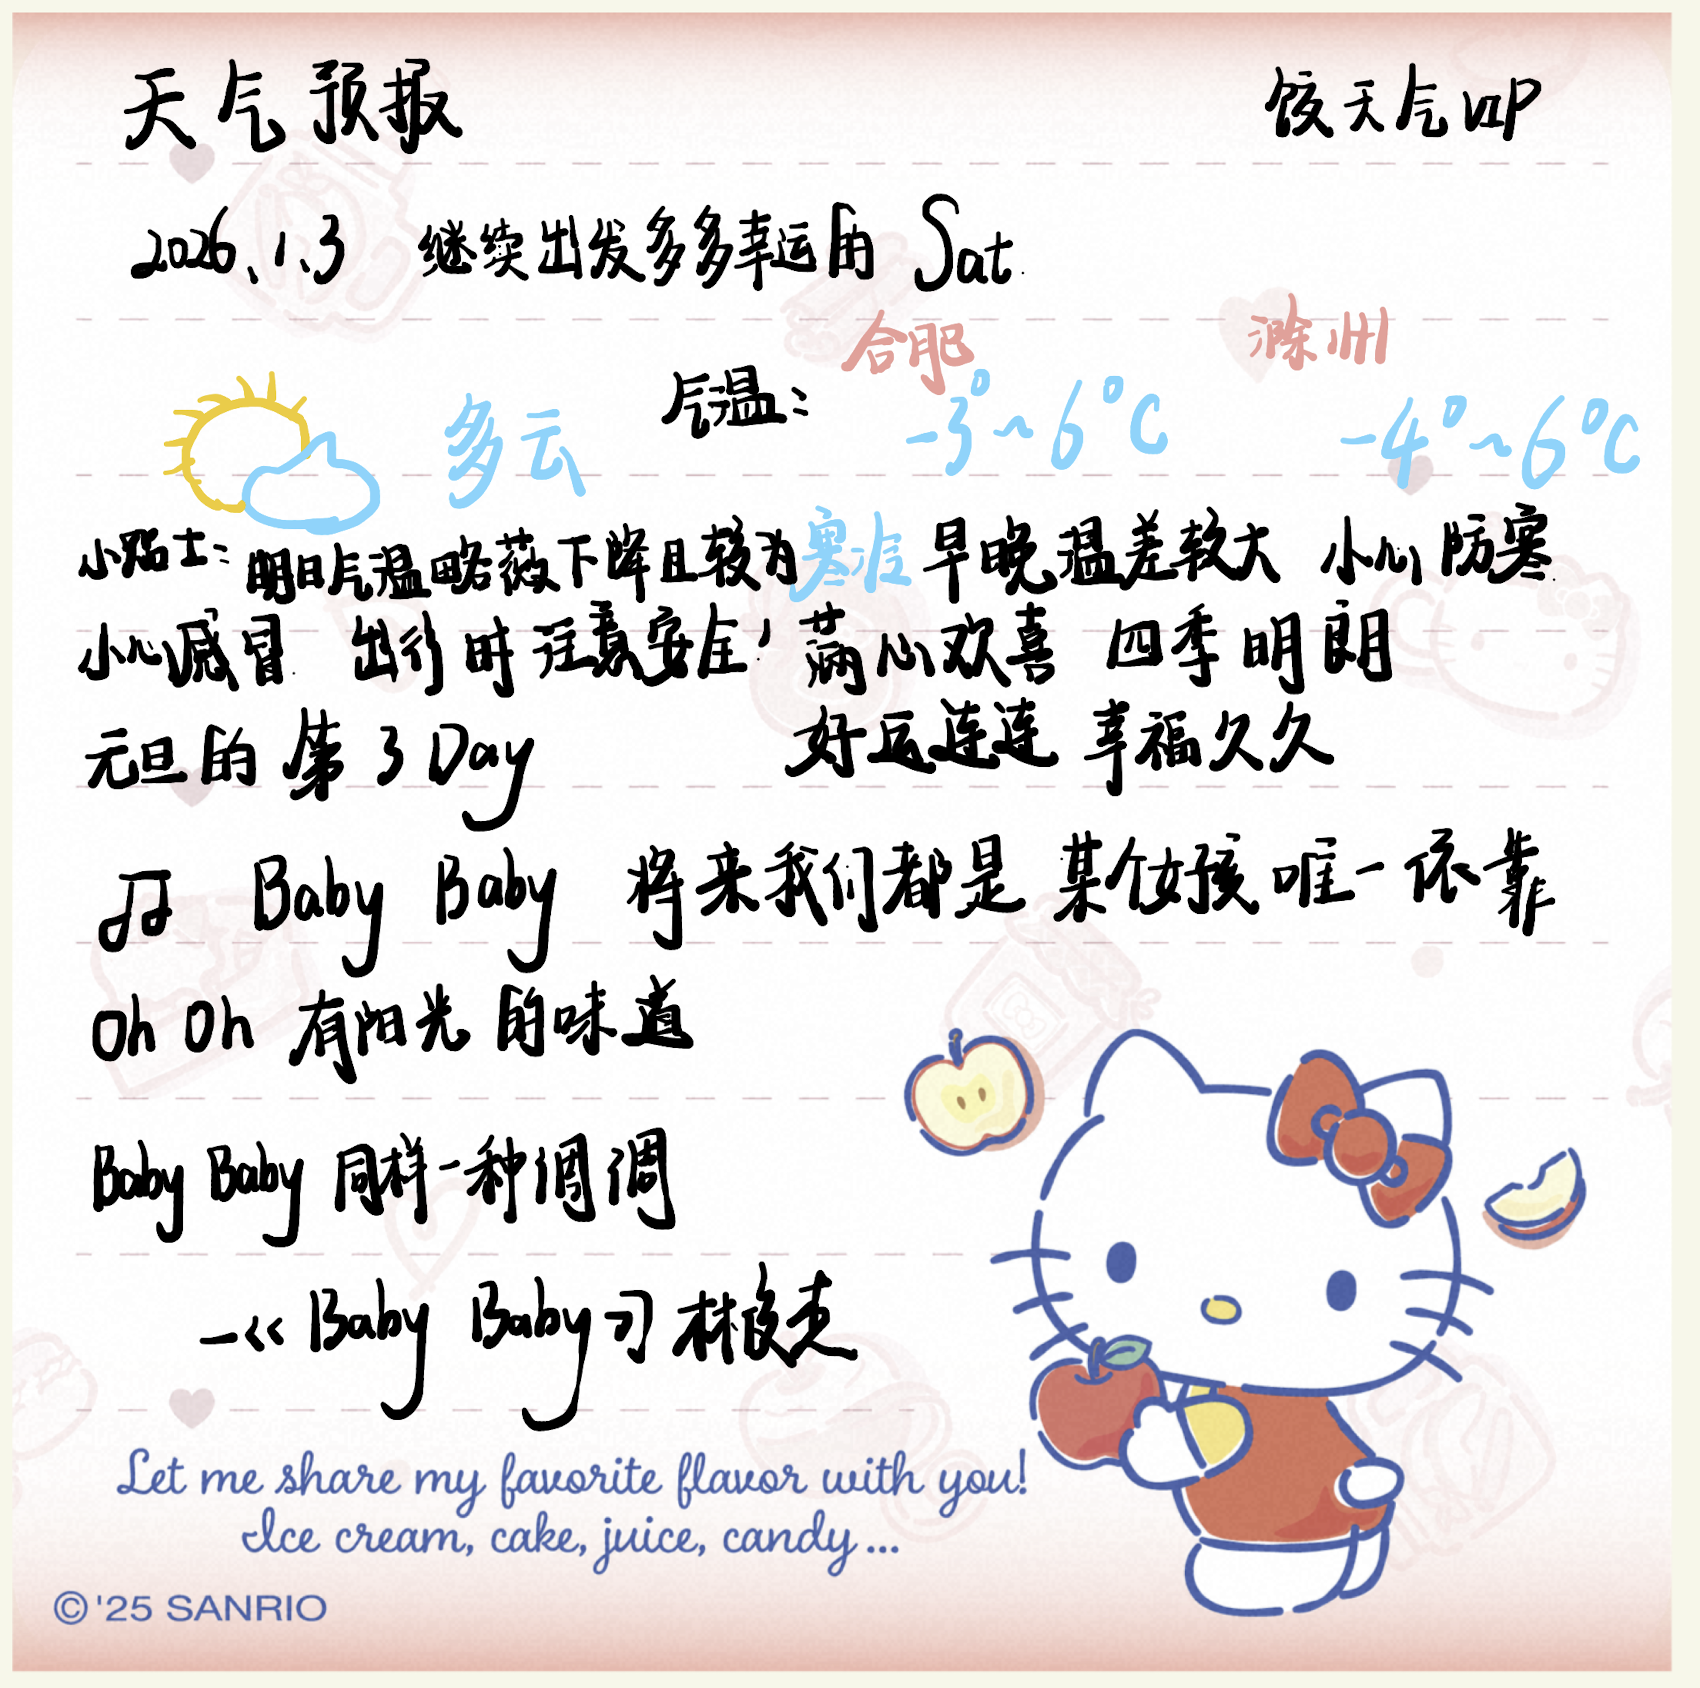 天气预报 饺天气VIP
2026.1.3 继续出发多多幸运的 Sat.
合肥 滁州
多云 气温: -3°~6°C -4°~6°C
小贴士: 明日气温略微下降且较为寒冷 早晚温差较大 小心防寒
小心感冒 出行时注意安全! 满心欢喜 四季明朗
元旦的第3Day 好运连连 幸福久久
♫ Baby Baby 将来我们都是某个女孩唯一依靠
Oh Oh 有阳光的味道
Baby Baby 同样一种调调
—<<Baby Baby》林俊杰
Let me share my favorite flavor with you!
Ice cream, cake, juice, candy...
©'25 SANRIO